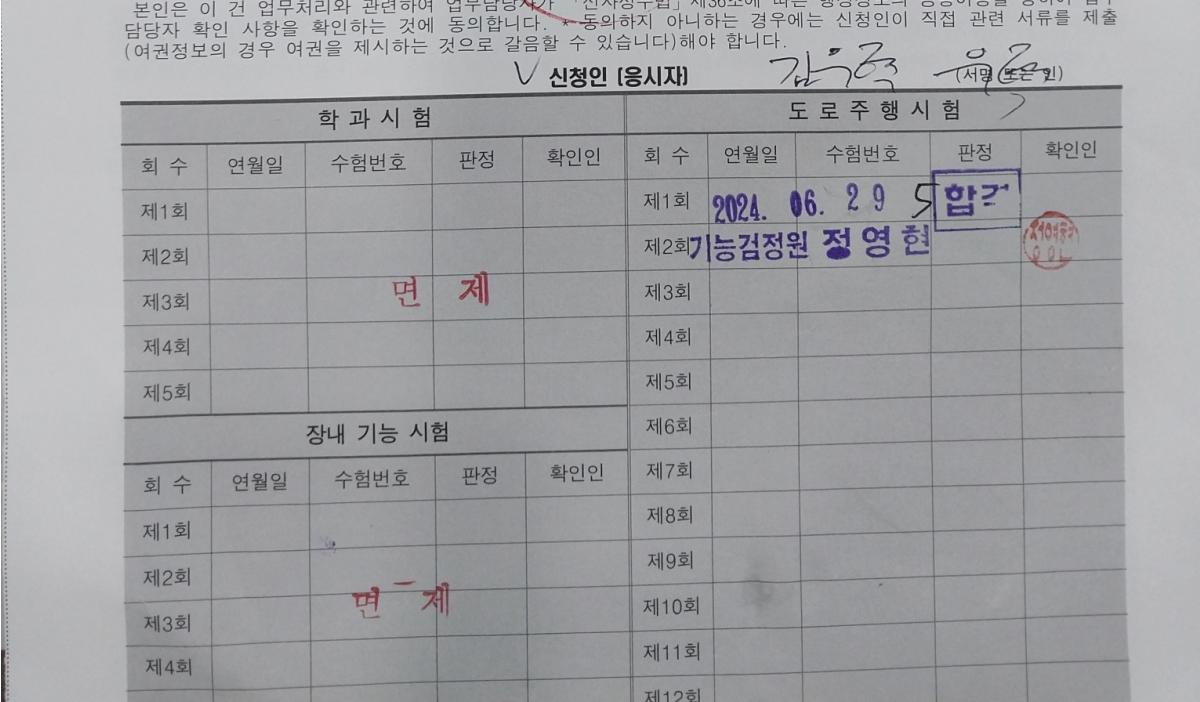 본인은 이 건 업무처리와 관련하여 업무담당자가
담당자 확인 사항을 확인하는 것에 동의합니다. * 동의하지 아니하는 경우에는 신청인이 직접 관련 서류를 제출
(여권정보의 경우 여권을 제시하는 것으로 갈음할 수 있습니다)해야 합니다.
신청인 (응시자) (서명 또는 인)
학 과 시 험
회 수 연월일 수험번호 판정 확인인
제1회
제2회
제3회
면 제
제4회
제5회
장내 기능 시험
회 수 연월일 수험번호 판정 확인인
제1회
제2회
면 제
제3회
제4회
도 로 주 행 시 험
회 수 연월일 수험번호 판정 확인인
제1회 2024. 06. 29 5 합격
제2회 기능검정원 정영현
제3회
제4회
제5회
제6회
제7회
제8회
제9회
제10회
제11회
제12회